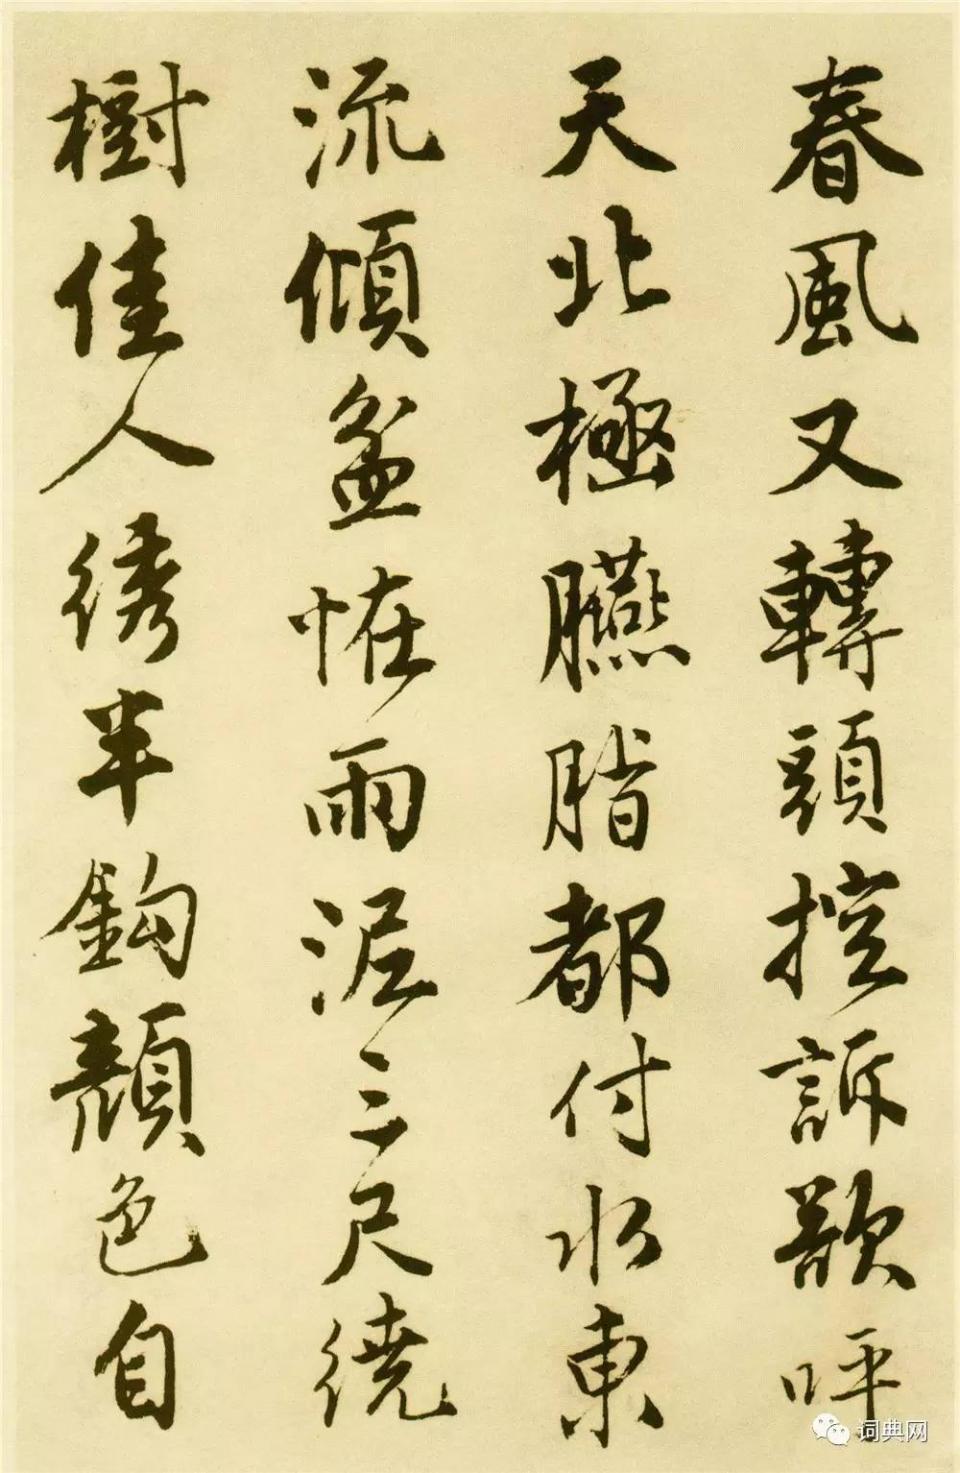 春風又轉頭控訴歆呼
天北極臙脂都付水東
流傾盆恠雨泥三尺繞
樹佳人綉半鈎顏色自
词典网